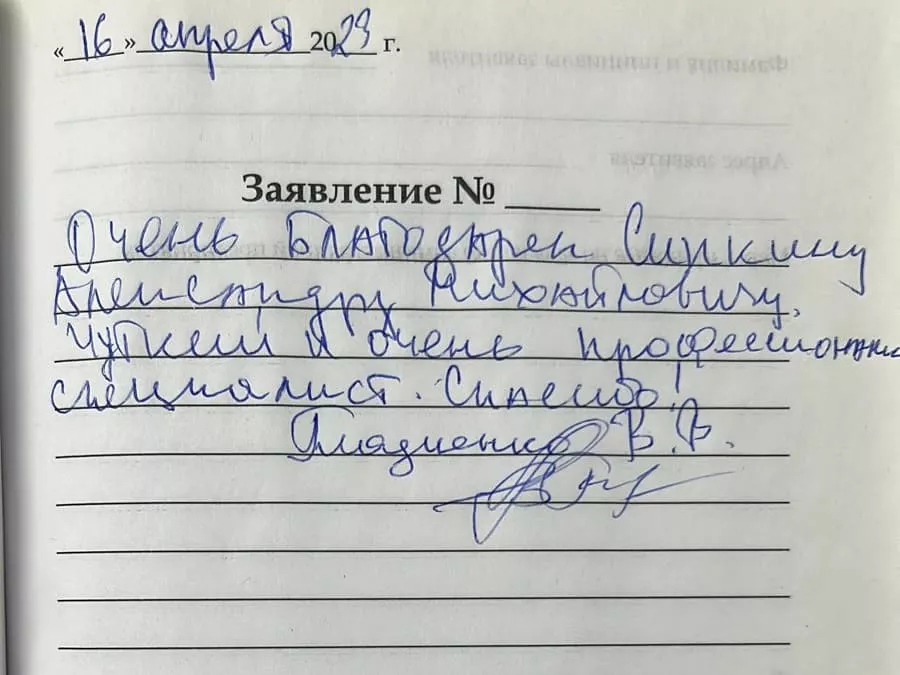 «16» апреля 2023 г.
Заявление № ____
Очень благодарен Сипкину
Александру Михайловичу.
Чуткий и очень профессиональн
специалист. Спасибо!
В.В.